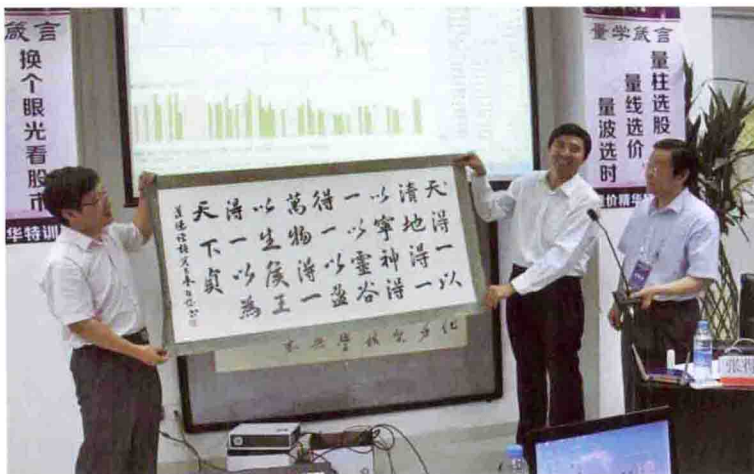 箴言
换个眼光看股市
华特训
量学箴言
量柱选股
量线选价
量波选时
价精华
天得一以
清地得一
以寧神得
一以靈谷
得一以盈
萬物得一
以生侯王
得一以為
天下貞
hp
张